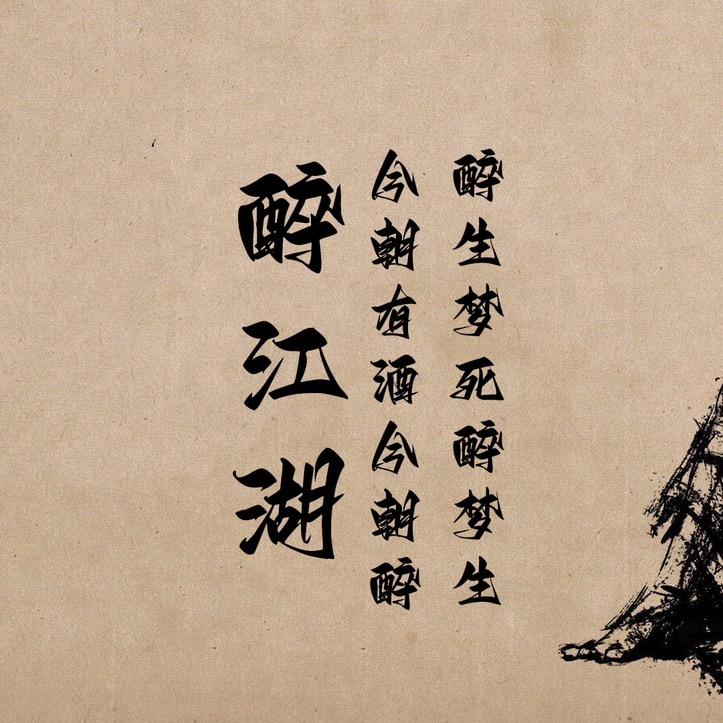 醉生梦死醉梦生
今朝有酒今朝醉
醉江湖